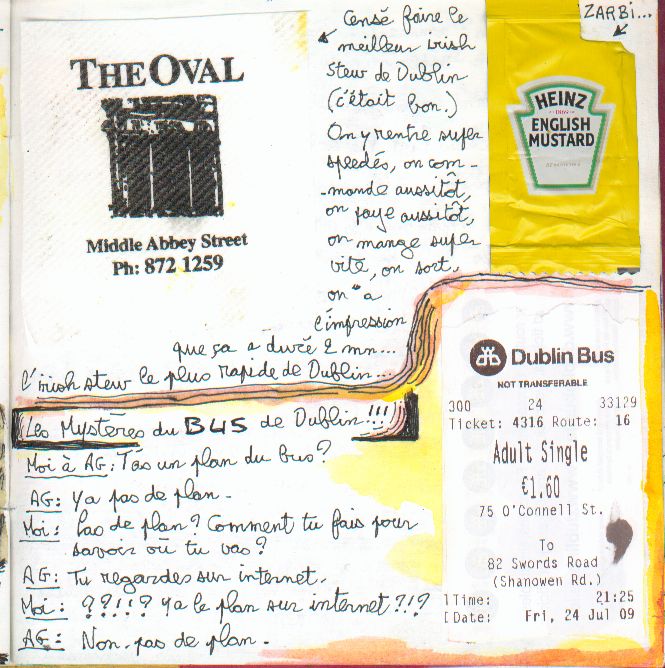 THE OVAL
Middle Abbey Street
Ph: 872 1259
Censé faire le
meilleur irish
stew de Dublin
(c'était bon.)
On y rentre super
speedés, on com-
-mande aussitôt,
on paye aussitôt,
on mange super
vite, on sort,
on "a
l'impression
que ça a duré 2 mn...
l'irish stew le plus rapide de Dublin...
ZARBI...
HEINZ
ENGLISH
MUSTARD
Les Mystères du BUS de Dublin!!!
Moi à AG: T'as un plan du bus?
AG: Ya pas de plan.
Moi: Pas de plan? Comment tu fais pour
savoir où tu vas?
AG: Tu regardes sur internet.
Moi: ??!!? Ya le plan sur internet?!?
AG: Non. pas de plan.
Dublin Bus
NOT TRANSFERABLE
300 24 33129
Ticket: 4316 Route: 16
Adult Single
€1.60
75 O'Connell St.
To
82 Swords Road
(Shanowen Rd.)
Time: 21:25
Date: Fri, 24 Jul 09